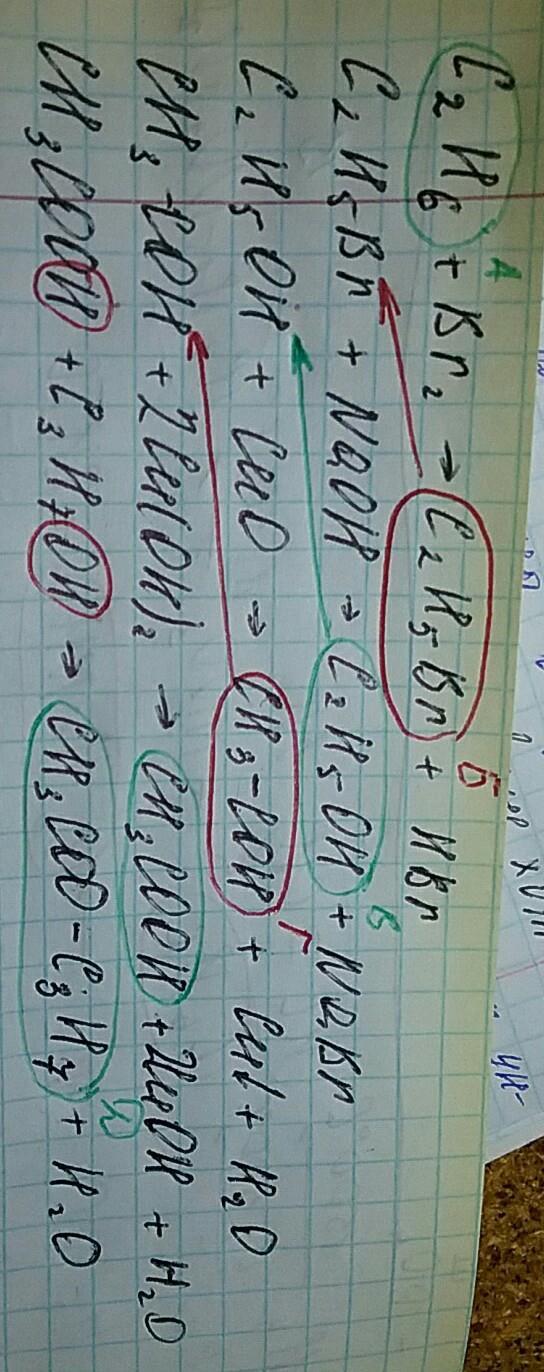 C₂H₆ + Br₂ → C₂H₅-Br + HBr
А Б
C₂H₅-Br + NaOH → C₂H₅-OH + NaBr
В
C₂H₅OH + CuO → CH₃-COH + Cu↓ + H₂O
Г
CH₃-COH + 2Cu(OH)₂ → CH₃COOH + 2CuOH + H₂O
CH₃COOH + C₃H₇OH → CH₃COO-C₃H₇ + H₂O
Д